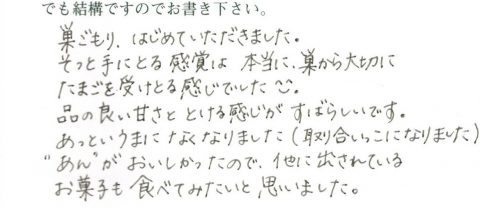 でも結構ですのでお書き下さい。
巣ごもり、はじめていただきました。
そっと手にとる感覚は 本当に、巣から大切に
たまごを受けとる感じでした。
品の良い甘さと とける感じが すばらしいです。
あっというまに なくなりました(取り合いっこになりました)
"あん"がおいしかったので、他に出されている
お菓子も 食べてみたいと 思いました。